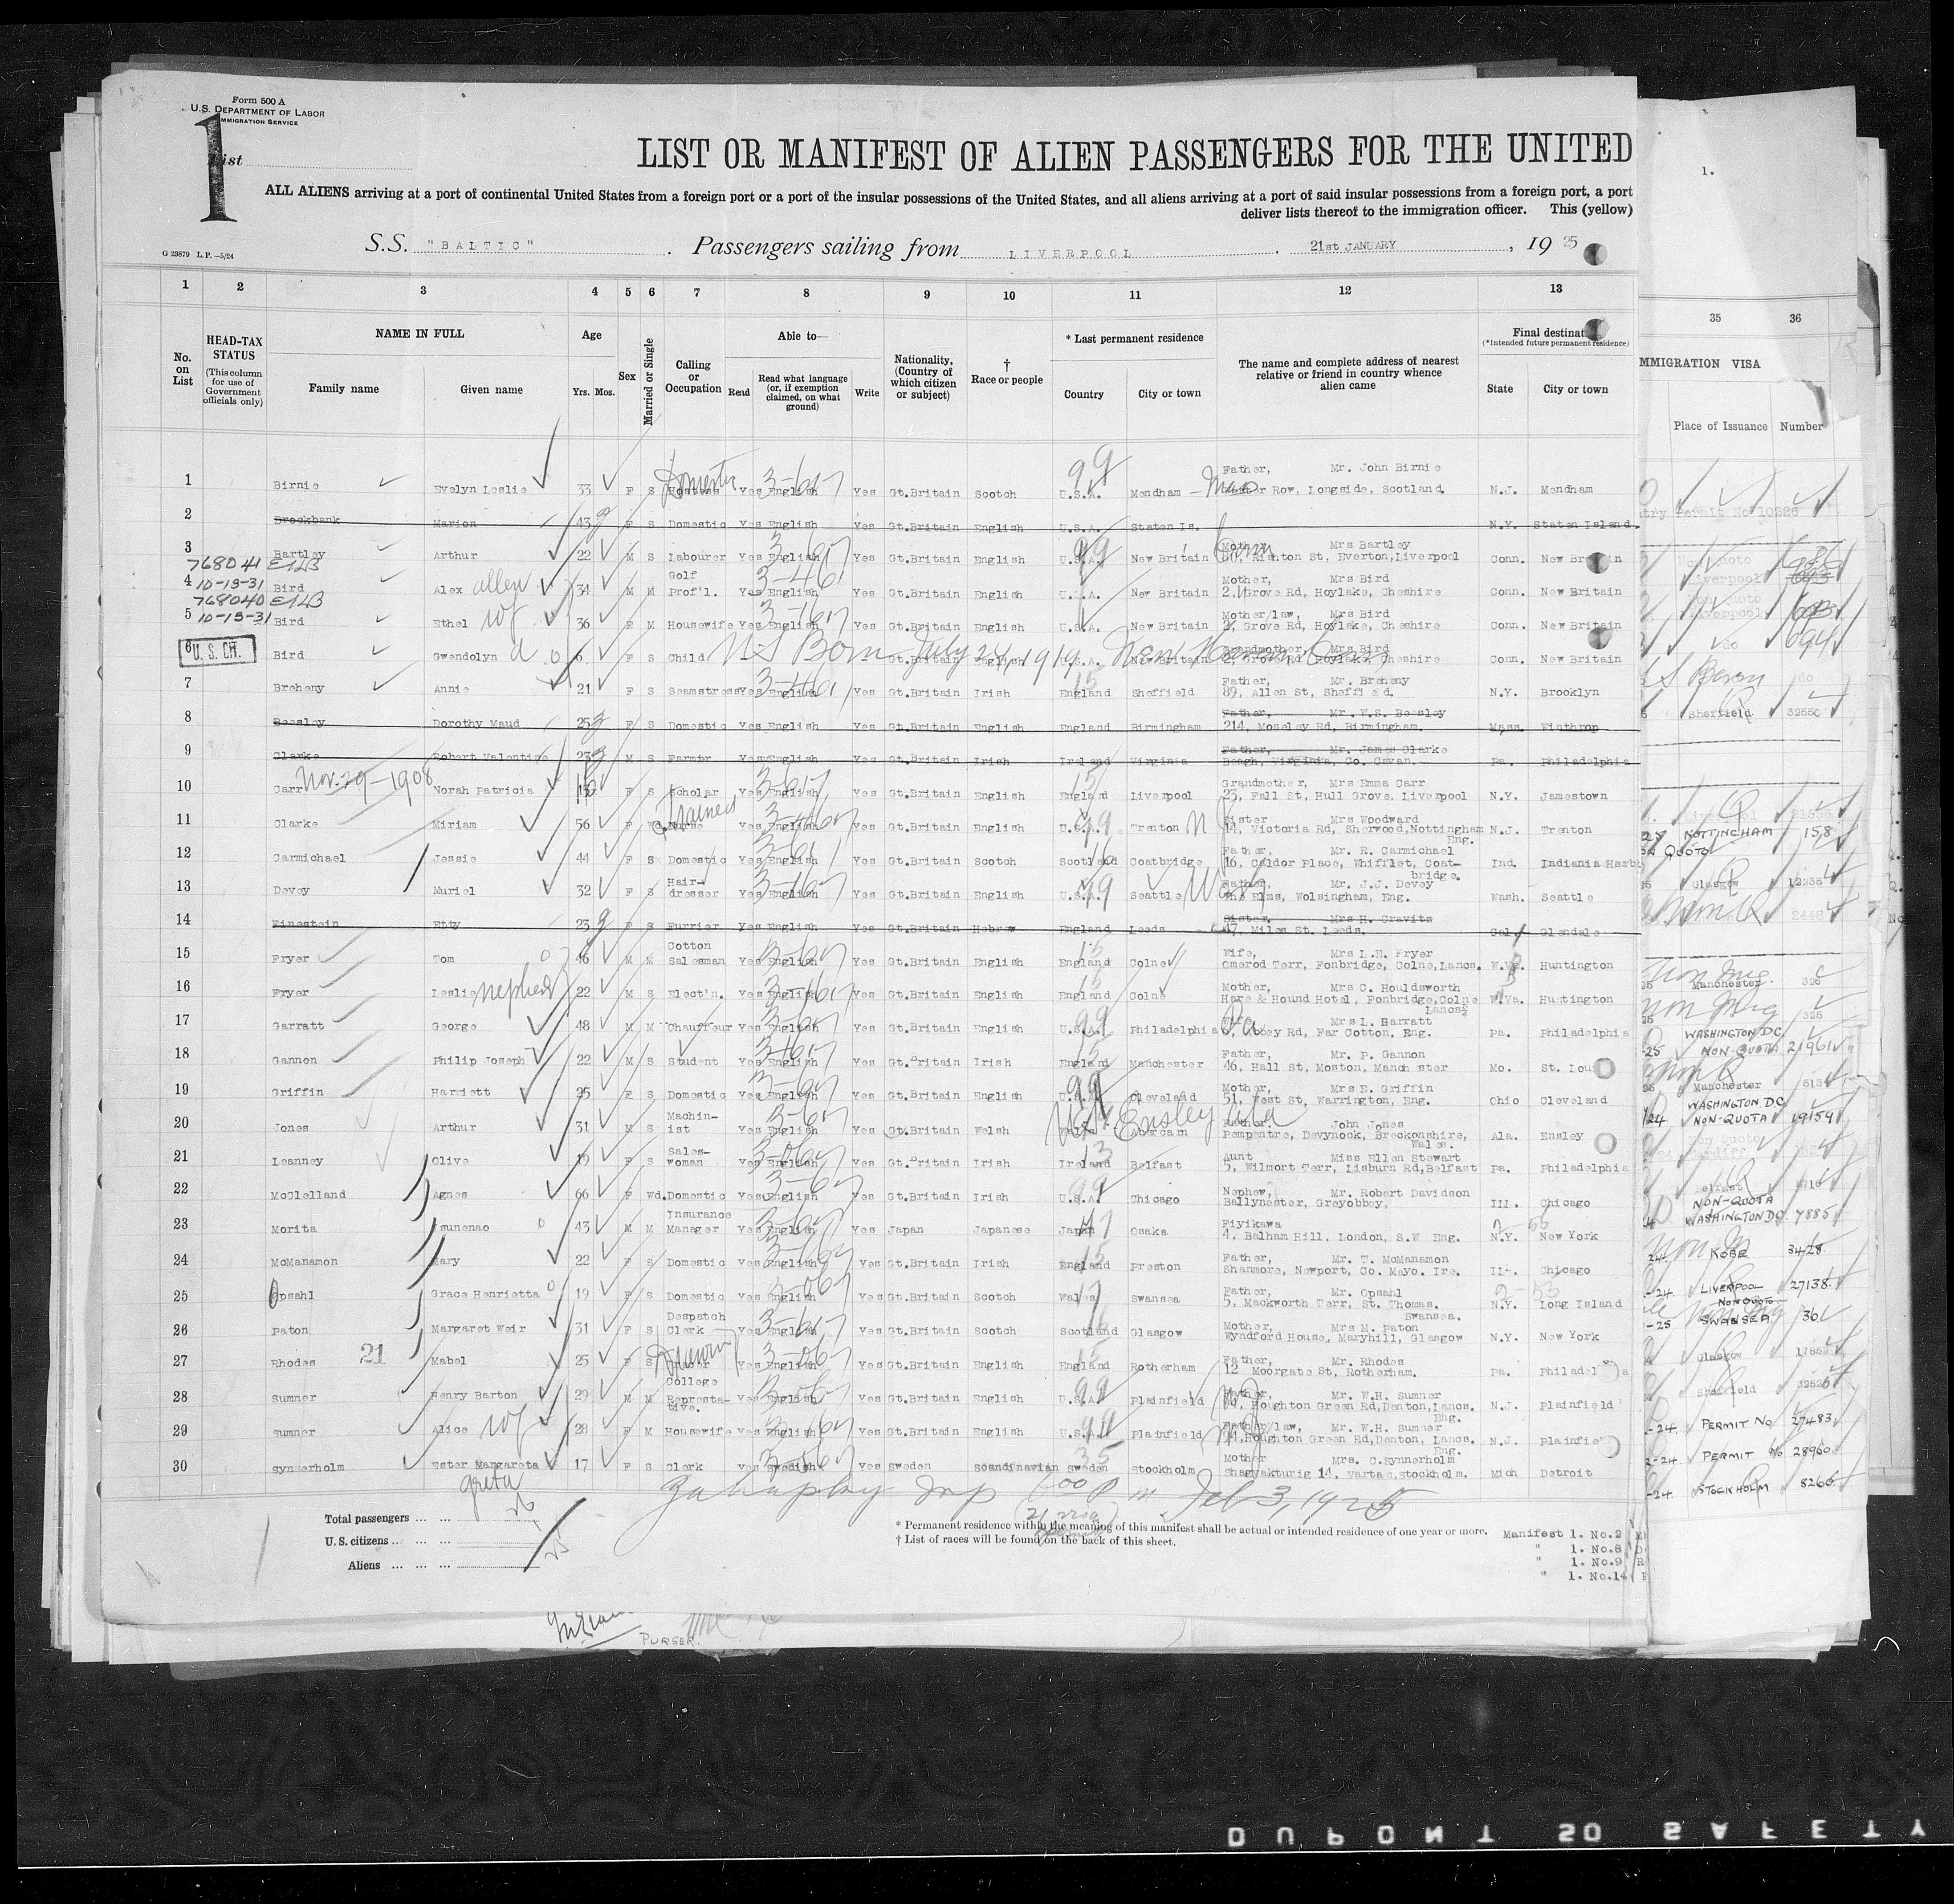 Form 500 A
U.S. DEPARTMENT OF LABOR
IMMIGRATION SERVICE
1
List
LIST OR MANIFEST OF ALIEN PASSENGERS FOR THE UNITED
ALL ALIENS arriving at a port of continental United States from a foreign port or a port of the insular possessions of the United States, and all aliens arriving at a port of said insular possessions from a foreign port, a port
deliver lists thereof to the immigration officer. This (yellow)
G 23879 L.P.—5/24
S.S. "BALTIC" Passengers sailing from LIVERPOOL. 21st JANUARY, 19 25
1 2 3 4 5 6 7 8 9 10 11 12 13 35 36
No. on List
HEAD-TAX STATUS (This column for use of Government officials only)
NAME IN FULL Family name Given name
Age Yrs. Mos.
Sex
Married or Single
Calling or Occupation
Able to— Read Read what language (or, if exemption claimed, on what ground) Write
Nationality, (Country of which citizen or subject)
† Race or people
* Last permanent residence Country City or town
The name and complete address of nearest relative or friend in country whence alien came
Final destinat (*Intended future permanent residence) State City or town
MMIGRATION VISA Place of Issuance Number
1 Birnie Evelyn Leslie 33 F S Hostess Domestic Yes English Yes Gt.Britain Scotch U.S.A. Mendham Father, Mr. John Birnie Row, Longside, Scotland. N.J. Mendham
2 Brockbank Marion 43 F S Domestic Yes English Yes Gt.Britain English U.S.A. Staten Is. N.Y. Staten Island.
3 Bartley Arthur 22 M S Labourer Yes English Yes Gt.Britain English U.S.A. New Britain Conn Mother, Mrs Bartley Rishton St, Everton, Liverpool Conn. New Britain
768041 10-13-31
4 Bird Alex allen 34 M M Golf Prof'l. Yes English Yes Gt.Britain English U.S.A. New Britain Mother, Mrs Bird 2, Grove Rd, Hoylake, Cheshire Conn. New Britain
768040 10-13-31
5 Bird Ethel wf 36 F M Housewife Yes English Yes Gt.Britain English U.S.A. New Britain Mother/law, Mrs Bird 2, Grove Rd, Hoylake, Cheshire Conn. New Britain
6 U.S. CIT. Bird Gwendolyn d F S Child US Born July 24, 1919 New Haven Conn U.S.A. New Britain Grandmother, Mrs Bird 2, Grove Rd Hoylake, Cheshire Conn. New Britain
7 Breheny Annie 21 F S Seamstress Yes English Yes Gt.Britain Irish England Sheffield Father, Mr. Breheny 89, Allen St, Sheffield. N.Y. Brooklyn
8 Beesley Dorothy Maud 25 F S Domestic Yes English Yes Gt.Britain English England Birmingham Father, Mr. W.S. Beesley 214, Moseley Rd, Birmingham. Mass. Winthrop
9 Clarke Robert Valentine 23 M S Farmer Yes English Yes Gt.Britain Irish Ireland Virginia Father, Mr. James Clarke Beagh, Virginia, Co. Cavan. Pa. Philadelphia
10 Carr Nov-29-1908 Norah Patricia F S Scholar Yes English Yes Gt.Britain English England Liverpool Grandmother, Mrs Emma Carr 23, Fall St, Hull Grove, Liverpool N.Y. Jamestown
11 Clarke Miriam 56 F Wd. Nurse Trained Yes English Yes Gt.Britain English U.S.A. Trenton Sister Mrs Woodward 14, Victoria Rd, Sherwood, Nottingham Eng. N.J. Trenton
12 Carmichael Jessie 44 F S Domestic Yes English Yes Gt.Britain Scotch Scotland Coatbridge Father, Mr. R. Carmichael 16, Caldor Place, Whifflet, Coatbridge. Ind. Indiania Harbo
13 Devey Muriel 32 F S Hair-dresser Yes English Yes Gt.Britain English U.S.A. Seattle Father, Mr. J.J. Devey The Elms, Wolsingham, Eng. Wash. Seattle
14 Finestein Etty 23 F S Furrier Yes English Yes Gt.Britain Hebrew England Leeds Sister. Mrs H. Gravitz 47, Miles St. Leeds. Cal. Glendale
15 Fryer Tom 46 M M Cotton Salesman Yes English Yes Gt.Britain English England Colne Wife, Mrs L.E. Fryer Omerod Terr, Fonbridge, Colne, Lancs. W.Va. Huntington
16 Fryer Leslie nephew 22 M S Elect'n. Yes English Yes Gt.Britain English England Colne Mother, Mrs C. Houldsworth Hare & Hound Hotel, Fonbridge, Colne Lancs. W.Va. Huntington
17 Garratt George 48 M M Chauffeur Yes English Yes Gt.Britain English U.S.A. Philadelphia Pa Mrs L. Harratt Abbey Rd, Far Cotton. Eng. Pa. Philadelphia
18 Gannon Philip Joseph 22 M S Student Yes English Yes Gt.Britain Irish England Manchester Father, Mr. P. Gannon 46, Hall St, Moston, Manchester Mo. St. Lou
19 Griffin Harriett 25 F S Domestic Yes English Yes Gt.Britain English U.S.A. Cleveland Mother, Mrs E. Griffin 51, West St, Warrington, Eng. Ohio Cleveland
20 Jones Arthur 31 M S Machinist Yes English Yes Gt.Britain Welsh Ensley Ala Father. John Jones Pempentre, Devynock, Breckonshire, Wales. Ala. Ensley
21 Leanney Olive 19 F S Sales-woman Yes English Yes Gt.Britain Irish Ireland Belfast Aunt Miss Ellen Stewart 5, Wilmort Terr, Lisburn Rd, Belfast Pa. Philadelphia
22 McClelland Agnes 66 F Wd. Domestic Yes English Yes Gt.Britain Irish U.S.A. Chicago Nephew, Mr. Robert Davidson Ballynester, Greyobbey, Ill. Chicago
23 Morita Tsunenao 43 M M Insurance Manager Yes English Yes Japan Japanese Japan Osaka Fiyikawa 4, Balham Hill, London, S.W Eng. N.Y. New York
24 McManamon Mary 22 F S Domestic Yes English Yes Gt.Britain Irish England Preston Father, Mr. T. McManamon Shanmore, Newport, Co. Mayo. Ire. Ill. Chicago
25 Opsahl Grace Henrietta 19 F S Domestic Yes English Yes Gt.Britain Scotch Wales Swansea Father, Mr. Opsahl 5, Mackworth Terr, St. Thomas. Swansea. N.Y. Long Island
26 Paton Margaret Weir 31 F S Despatch Clerk Yes English Yes Gt.Britain Scotch Scotland Glasgow Mother, Mrs M. Paton Wyndford House, Maryhill, Glasgow N.Y. New York
27 Rhodes 21 Mabel 25 F S Yes English Yes Gt.Britain English England Rotherham Father, Mr. Rhodes 12 Moorgate St, Rotherham. Pa. Philadel a
28 Sumner Henry Barton 29 M M College Representative. Yes English Yes Gt.Britain English U.S.A. Plainfield Mr. W.H. Sumner Houghton Green Rd, Denton, Lancs. Eng. N.J. Plainfield
29 Sumner Alice wf 28 F M Housewife Yes English Yes Gt.Britain English U.S.A. Plainfield Father/law, Mr. W.H. Sumner Houghton Green Rd, Denton, Lancs. Eng. N.J. Plainfie
30 Synnerholm Ester Margareta Greta 17 F S Clerk Yes Swedish Yes Sweden Scandinavian Sweden Stockholm Mother Mrs. C. Synnerholm 14, Stockholm. Mich Detroit
Feb 3, 1925
Total passengers
U.S. citizens
Aliens
* Permanent residence within the meaning of this manifest shall be actual or intended residence of one year or more.
† List of races will be found on the back of this sheet.
Manifest 1. No.2
" 1. No.8
" 1. No.9
" 1. No.14
1.
Permit No 10226
Sheffield 32550
NOTTINGHAM 158
QUOTA
Glasgow 12235
Manchester 325
WASHINGTON DC
NON-QUOTA 21961
Manchester
WASHINGTON DC
NON-QUOTA 19159
NON-QUOTA
WASHINGTON DC 7885
KOBE 3428
LIVERPOOL 27138
NON QUOTA
SWANSEA 36
Glasgow
Sheffield 32526
PERMIT No 27483
PERMIT No 28960
STOCKHOLM 8266
PURSER.
DUPONT SO SAFETY